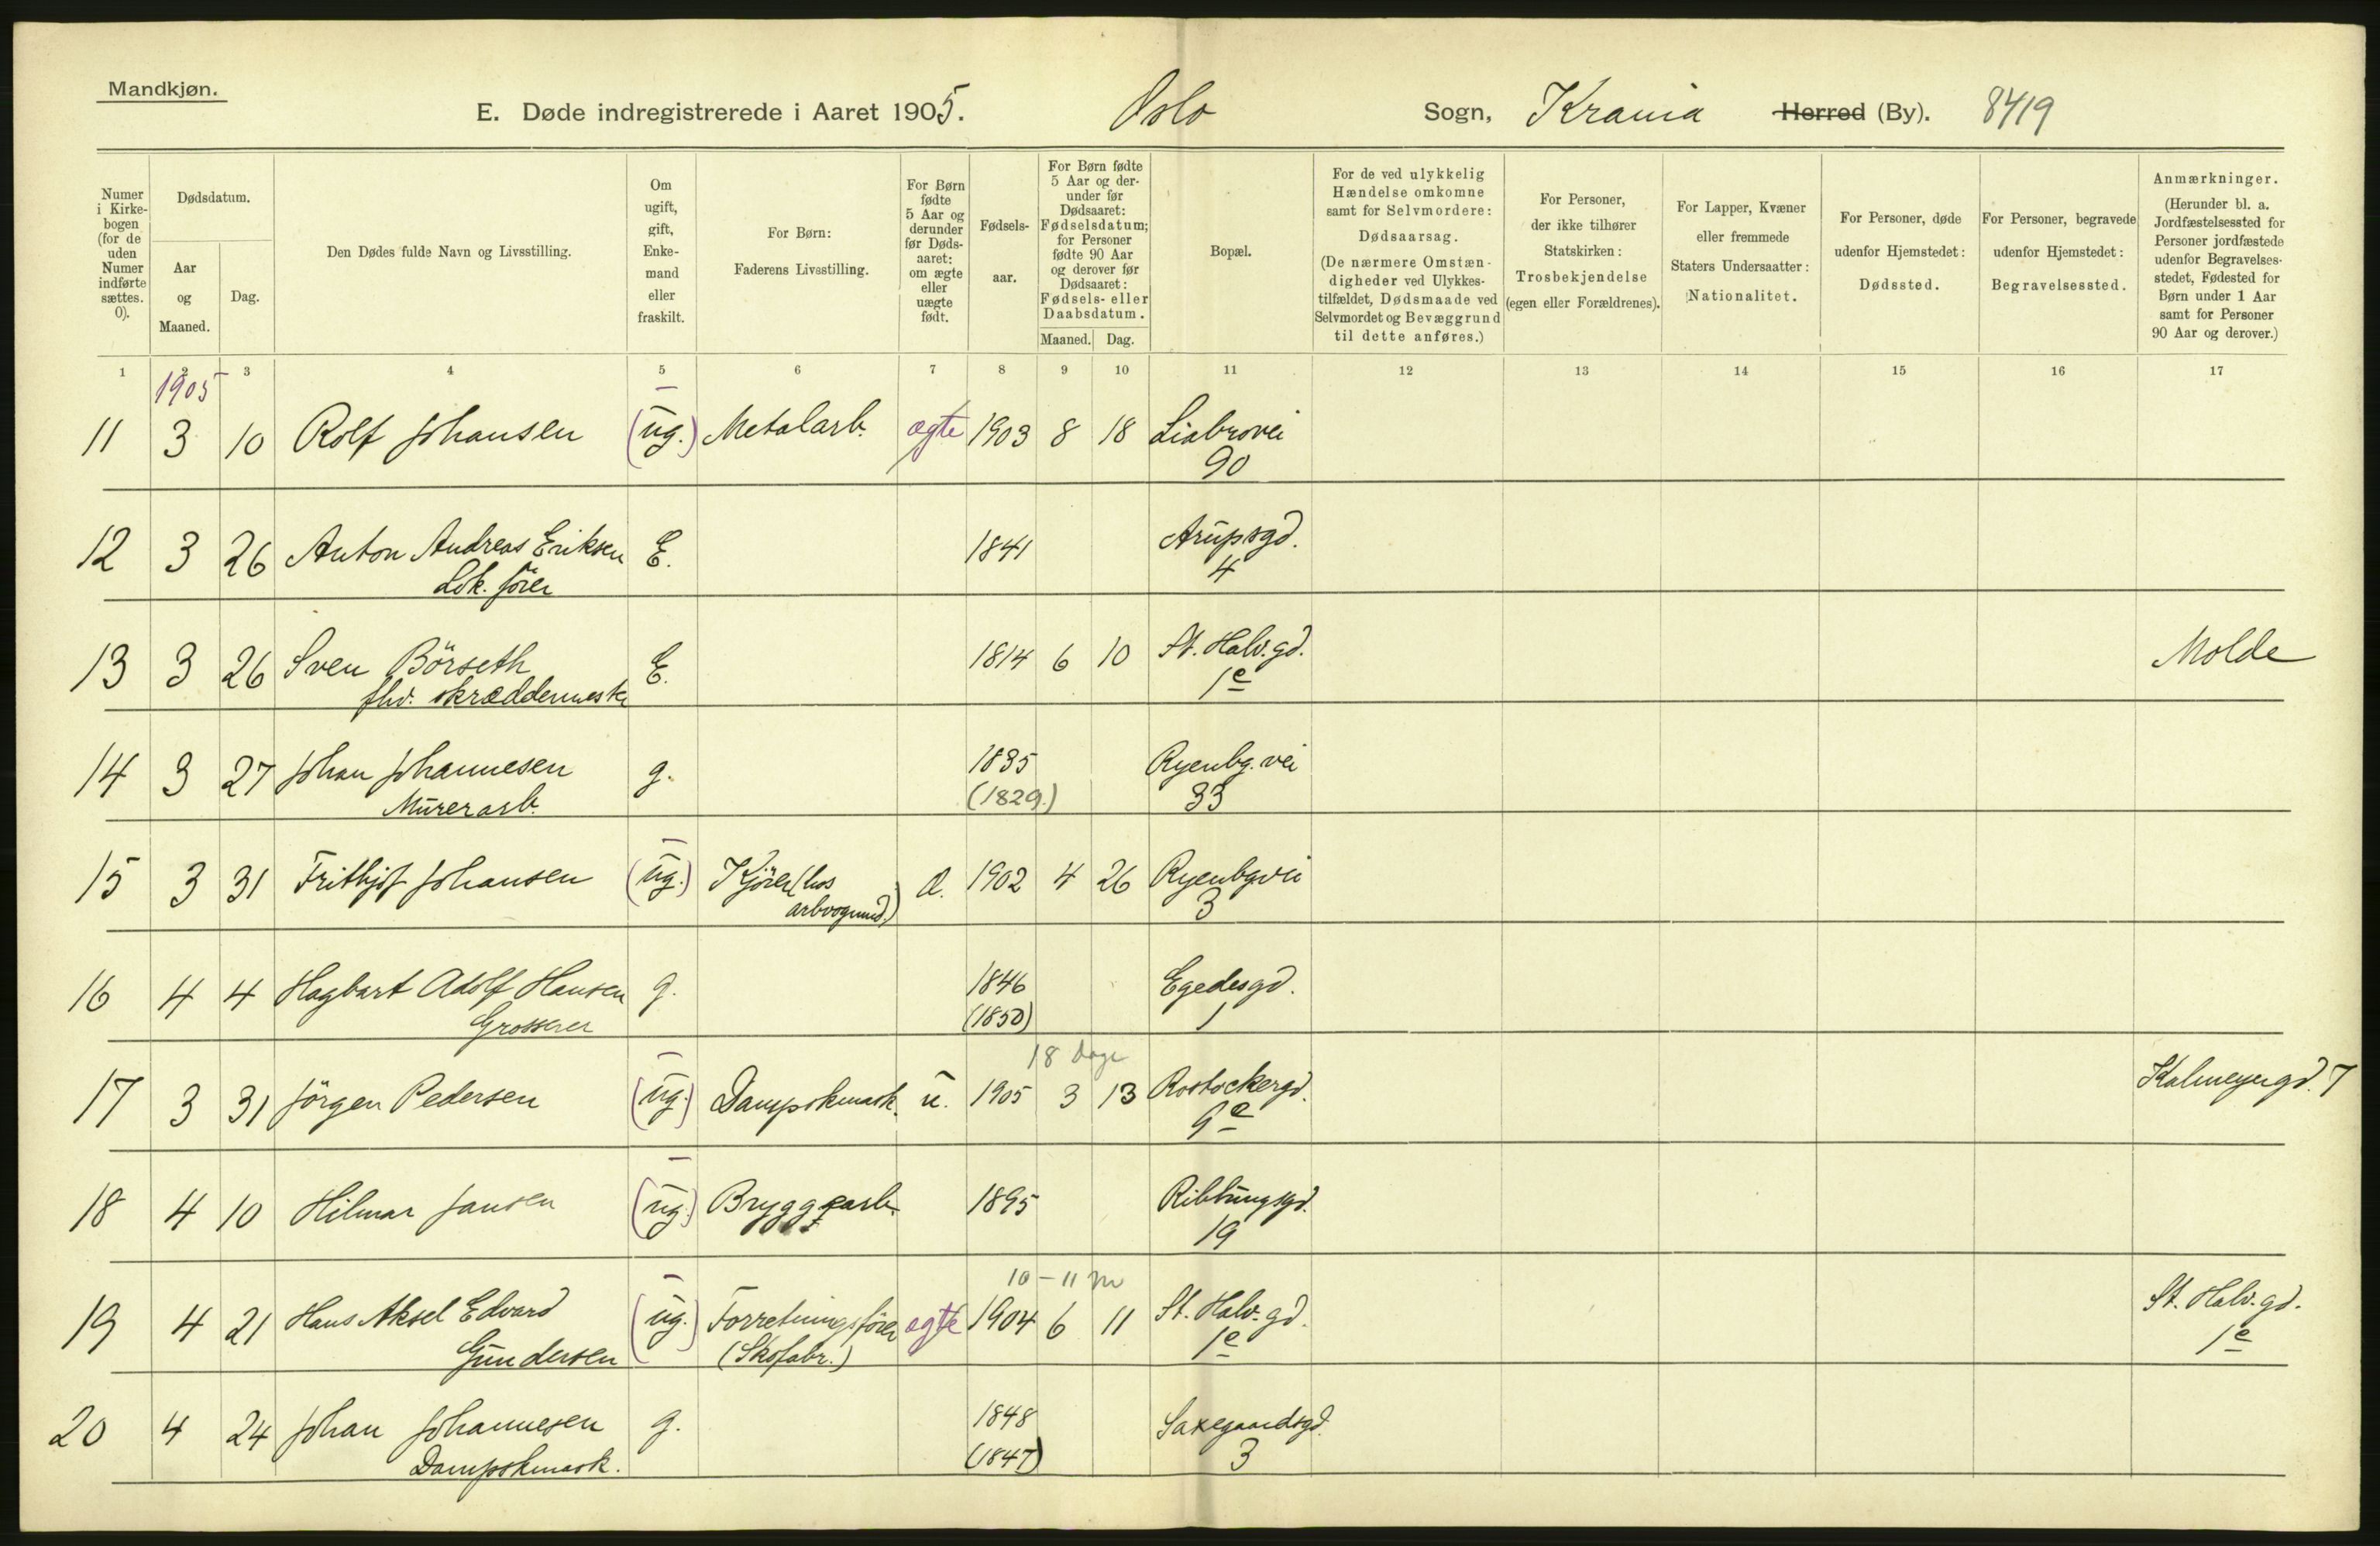 Mandkjøn.
E. Døde indregistrerede i Aaret 1905. Oslo Sogn, Krania Herred (By). 8419
Numer i Kirkebogen (for de uden Numer indførte sættes. 0).
Dødsdatum.
Aar og Maaned.
Dag.
Den Dødes fulde Navn og Livsstilling.
Om ugift, gift, Enkemand eller fraskilt.
For Børn: Faderens Livsstilling.
For Børn fødte 5 Aar og derunder før Dødsaaret: om ægte eller uægte født.
Fødselsaar.
For Børn fødte 5 Aar og derunder før Dødsaaret: Fødselsdatum; for Personer fødte 90 Aar og derover før Dødsaaret: Fødsels- eller Daabsdatum.
Maaned. Dag.
Bopæl.
For de ved ulykkelig Hændelse omkomne samt for Selvmordere: Dødsaarsag. (De nærmere Omstændigheder ved Ulykkestilfældet, Dødsmaade ved Selvmordet og Bevæggrund til dette anføres.)
For Personer, der ikke tilhører Statskirken: Trosbekjendelse (egen eller Forældrenes).
For Lapper, Kvæner eller fremmede Staters Undersaatter: Nationalitet.
For Personer, døde udenfor Hjemstedet: Dødssted.
For Personer, begravede udenfor Hjemstedet: Begravelsessted.
Anmærkninger. (Herunder bl. a. Jordfæstelsessted for Personer jordfæstede udenfor Begravelsesstedet, Fødested for Børn under 1 Aar samt for Personer 90 Aar og derover.)
1 2 3 4 5 6 7 8 9 10 11 12 13 14 15 16 17
1905
11 3 10 Rolf Johansen (ug.) Metalarb. ægte 1903 8 18 Liabrovei
90
12 3 26 Anton Andreas Eriksen E. 1841 Arupsgd.
Lok. fører 4
13 3 26 Sven Börseth E. 1814 6 10 St. Halv.gd. Molde
fhv. skræddermester 1e
14 3 27 Johan Johannesen g. 1835 Ryenbg. vei
Murerarb. (1829.) 33
15 3 31 Frithjof Johansen (ug.) Kjörer (hos Æ. 1902 4 26 Ryenbgvei
arbvognmd.) 3
16 4 4 Hagbart Adolf Hansen g. 1846 Egedesgd.
Grosserer (1850) 1
18 dage
17 3 31 Jörgen Pedersen (ug.) Dampskmask. u. 1905 3 13 Rostockergd. Kalmeyergd. 7
9e
18 4 10 Hilmar Jansen (ug.) Bryggearb. 1895 Ribbungsgd.
19
10-11 m
19 4 21 Hans Aksel Edvard (ug.) Forretningsfører ægte 1904 6 11 St. Halv.gd. St. Halv.gd.
Gundersen (Skofabr.) 1e 1e
20 4 24 Johan Johannesen g. 1848 Saxegaardsgd.
Dampskmask. (1847) 3